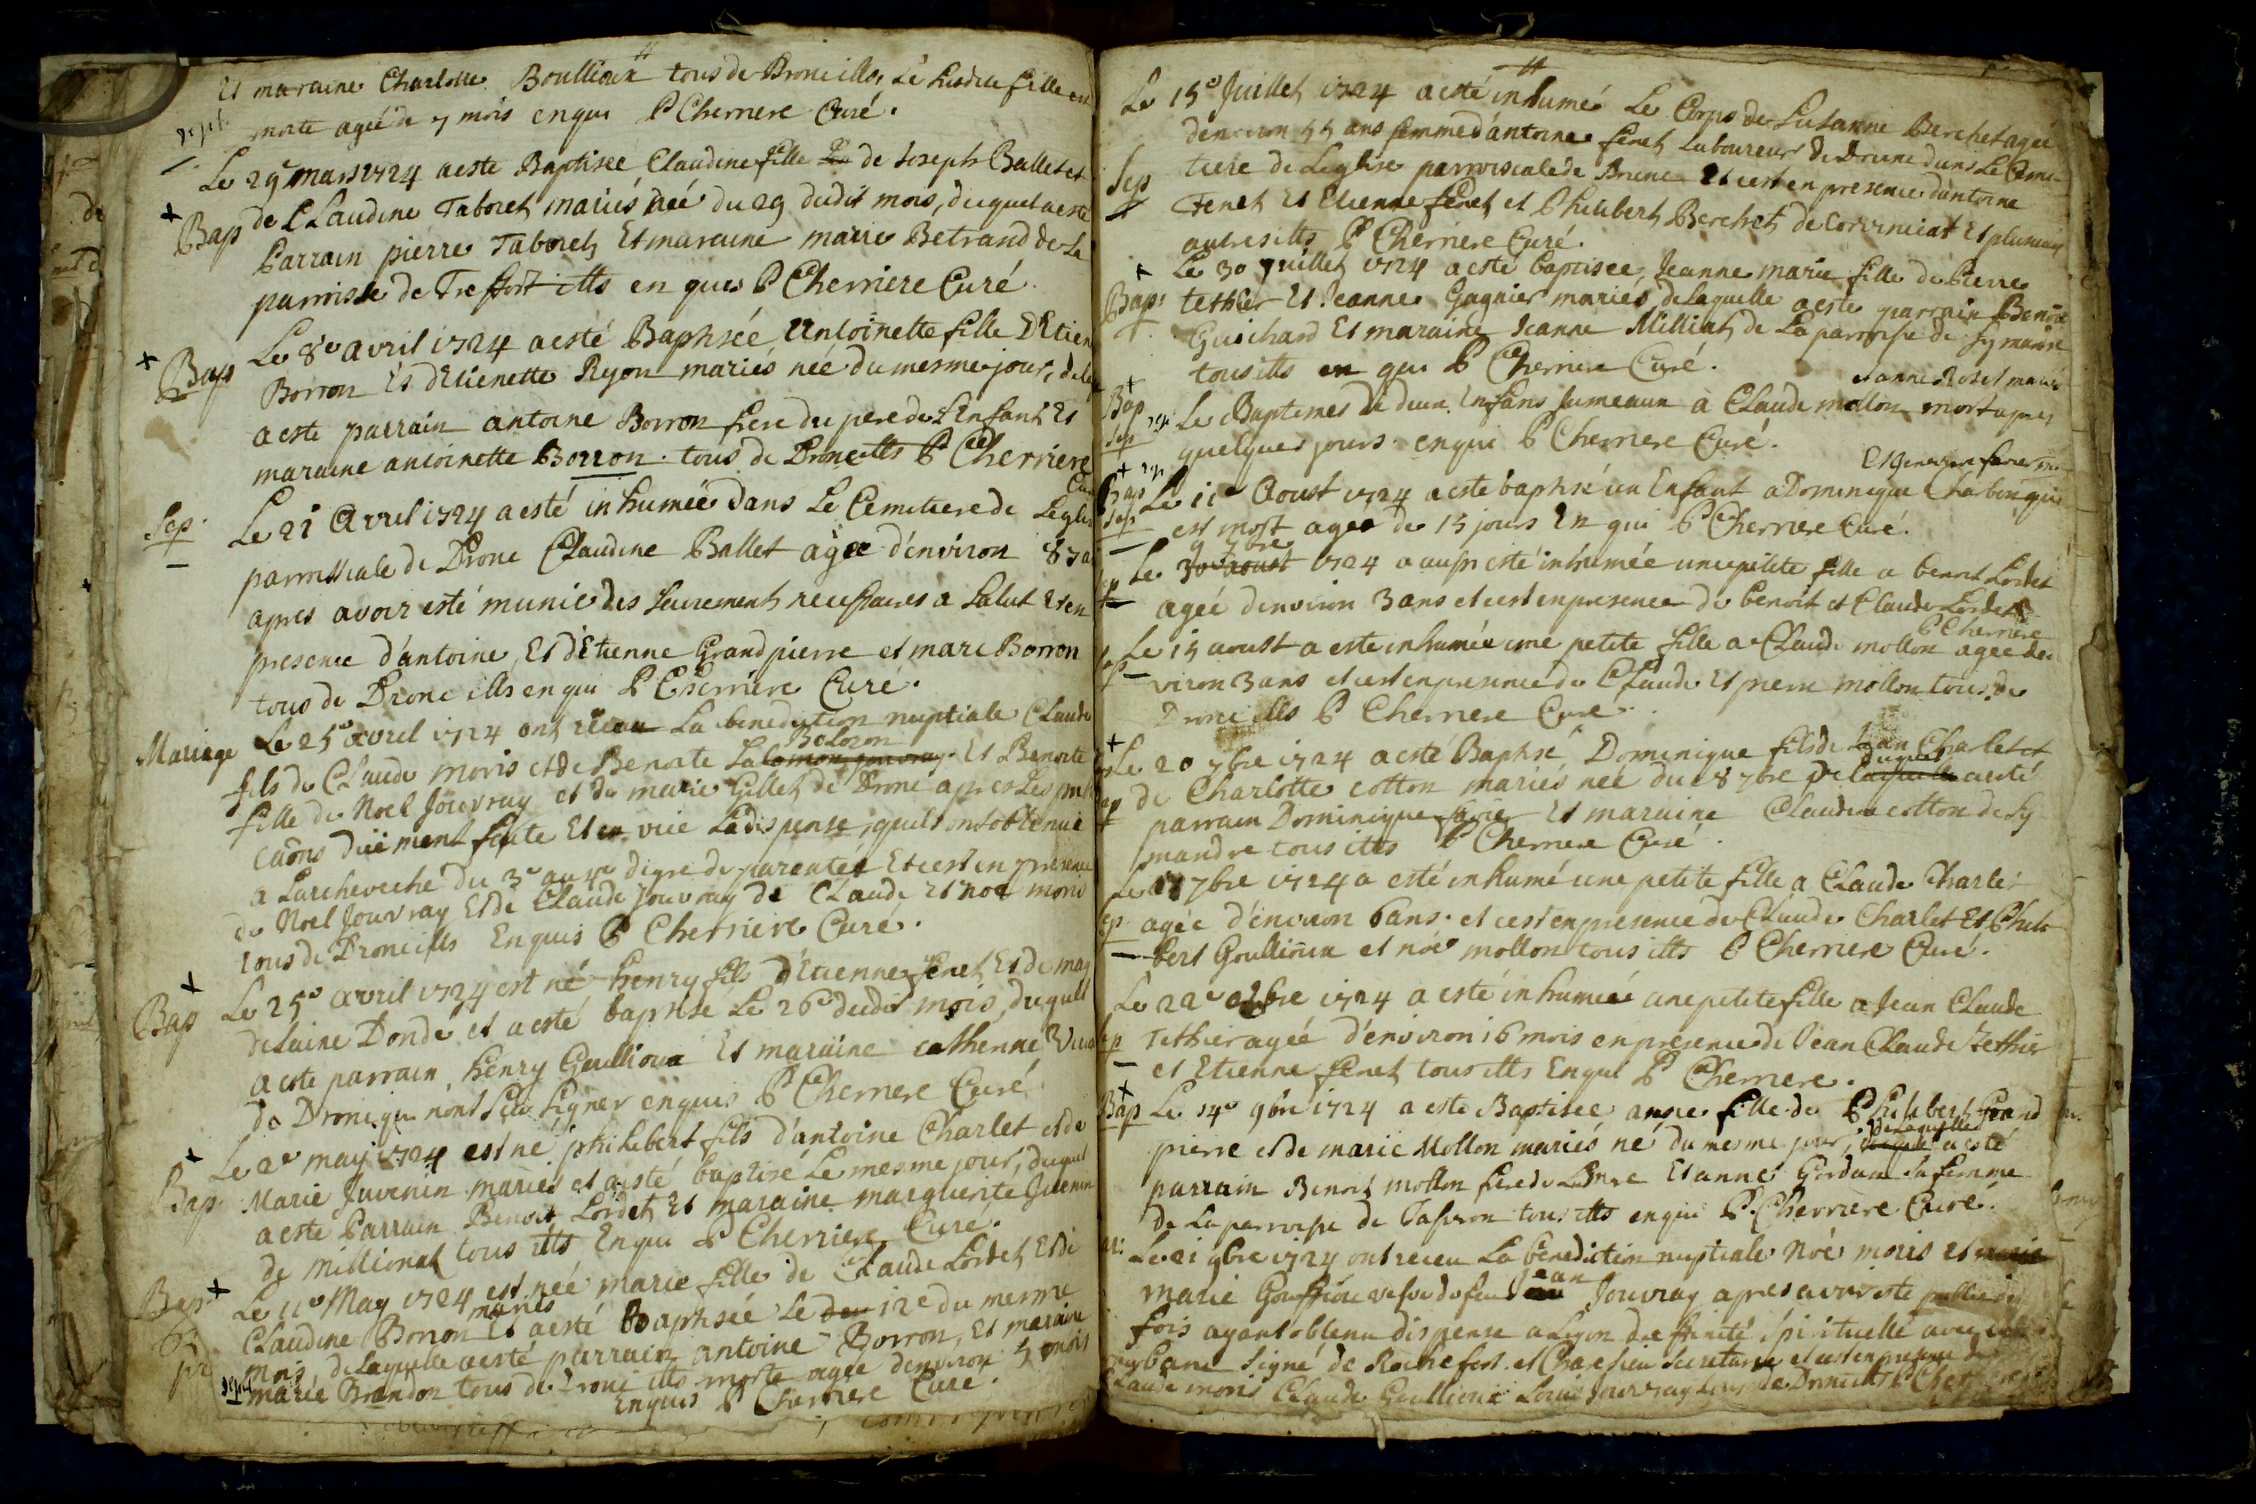 Et maraine Charlotte Boullioux tous de Drom illts, Le susdite fille est
morte ageé de 7 mois enqui P Cherriere Curé.
Sept.
Le 29e mars 1724 a este Baptisee Claudine fille de Joseph Ballet et
Bap de CLaudine Taboret mariés neé du 29 dudit mois, duquel a este
Parrain pierre Taboret Et maraine marie Betrand de La
parroisse de Treffort illts en ques P Cherriere Curé.
Le 8e avril 1724 a esté Baptisée Antoinette fille D'Etien
Bap
Borron Et d'Etienette Ryon mariés née du mesme jour, de la
a este parrain antoine Borron frere du pere de L'Enfant Et
maraine antoinette Borron. tous de Drom illts P Cherriere
Curé
Sep. Le 21e Avril 1724 a esté inhumée dans Le Cemetiere de Leglise
parroissiale de Drom CLaudine Ballet agée d'environ 87 a
apres avoir esté munie des Sacrements necessaires a Salut Et en
presence d'antoine, Et d'Etienne Grandpierre et marc Borron
tous de Drom illts enqui P Cherriere Curé.
Mariage Le 25e avril 1724 ont receu La benediction nuptiale CLaude
Bolozon
fils de CLaude moris et de Benoite Et Benoite
fille de Noel Jouvray et de marie Gillet de Drom apres Les publi
caons düement faite Et en vüe La dispense, quils ont obtenüe
a Larcheveche du 3e au 4e degre de parentée Et c'est en presence
de Noel Jouvray Et de CLaude Jouvray de CLaude Et noé moris
tous de Drom illts Enquis P Cherriere Curé.
Bap Le 25e avril 1724 est né henry fils d'Etienne fenet Et de mag
delaine Donde et a esté baptisé Le 26e dudit mois, duquel
a este parrain, henry Goullioux Et maraine catherine
de Drom qui nont Sceu Signer enquis P Cherriere Curé
Bap. Le 2e may 1724 est né philibert fils d'antoine Charlet et de
Marie Juvenin mariés et a esté baptisé Le mesme jour, duquel
a este Parrain Benoit Lordet Et maraine marguerite Juvenin
de Millionat tous illts Enqui P Cherriere Curé.
Bap. Le 11e May 1724 est neé marie fille de CLaude Lordet Et de
mariés
Claudine Borron Et a esté Baptisée Le 12e du mesme
mois de Laquelle a esté parrain antoine Borron, Et maraine
marie Brandon tous de Drom illts morte agée d'environ 5 mois
Enquis P Cherriere Curé.
Le 15e Juillet 1724 a esté inhumeé Le Corps de Susanne Berchet ageé
denviron 55 ans femme d'antoine fenet Laboureur de Drom dans Le Ceme
Sep tiere de Leglise parroissiale de Drom Et c'est en presence d'antoine
Fenet Et Etienne fenet et Philibert Berchet de Corveissiat Et plusieurs
autres illts P Cherriere Curé.
Le 30 Juillet 1724 a esté baptisee Jeanne marie fille de Pierre
Bap: tethier Et Jeanne Gagnier mariés de laquelle a este parrain Benoit
Guichard Et maraine Jeanne Milliat de La parroisse de Symandre
tous illts en qui P Cherriere Curé.
et anne Rolet mariés
Bap Le Baptemes de deux Enfans Jumeaux a CLaude mollon mort apres
Sep quelques jours enqui P Cherriere Curé.
Bap Le 11e Aoust 1724 a esté baptisé un Enfant a Dominique Chabin qui
Sep est mort agée de 15 jours En qui P Cherriere Curé.
9 7bre
Le 30e aoust 1724 a aussi esté inhumée une petite fille a benoit Lordet
ageé denviron 3 ans et c'est enpresence de Benoit et CLaude Lordet
P Cherriere
Sep Le 15 aoust a este inhumée une petite fille a CLaude mollon agée den
viron 3 ans et c'est enpresence de CLaude Et pierre mollon tous de
Drom illts P Cherriere Curé.
Le 20 7bre 1724 a esté Baptisé Dominique fils de Jean Charlet et
duquel
Bap de Charlotte cotton mariés née du 18 7bre de laquelle a esté
parrain Dominique Et maraine Claudine cotton de Sy
mandre tous illts P Cherriere Curé.
Le 7bre 1724 a esté inhumé une petite fille a CLaude Charlet
Sep agée d'environ 6 ans. et c'est enpresence de CLaude Charlet Et Phili
bert Goullioux et noé mollon tous illts P Cherriere Curé.
Le 22e 1724 a esté inhumée une petite fille a Jean CLaude
Sep Tethier ageé d'environ 16 mois en presence de Jean CLaude Tethier
et Etienne fenet tous illts Enqui P Cherriere.
Bap Le 14e 9bre 1724 a este Baptisée anne fille de Philibert Grand
delaquelle
pierre et de marie Mollon mariés né du mesme jour, duquel a esté
parrain Benoit mollon frere de La mere Et anne Gordan sa femme
de La parroisse de Tassiron tous illts enqui P. Cherriere Curé.
Le 21 9bre 1724 ont receu La benediction nuptiale Noé moris et marie
Jean
marie Goussion vefve du feu Jouvray apres avoir este publié
fois ayant obtenu dispense a Lyon d'affinité spirituelle avec
Signé de Rochefort et secretaire et c'est en presence de
CLaude moris CLaude Goullioux Louis Jouvray tous de Drom illts P Cherriere